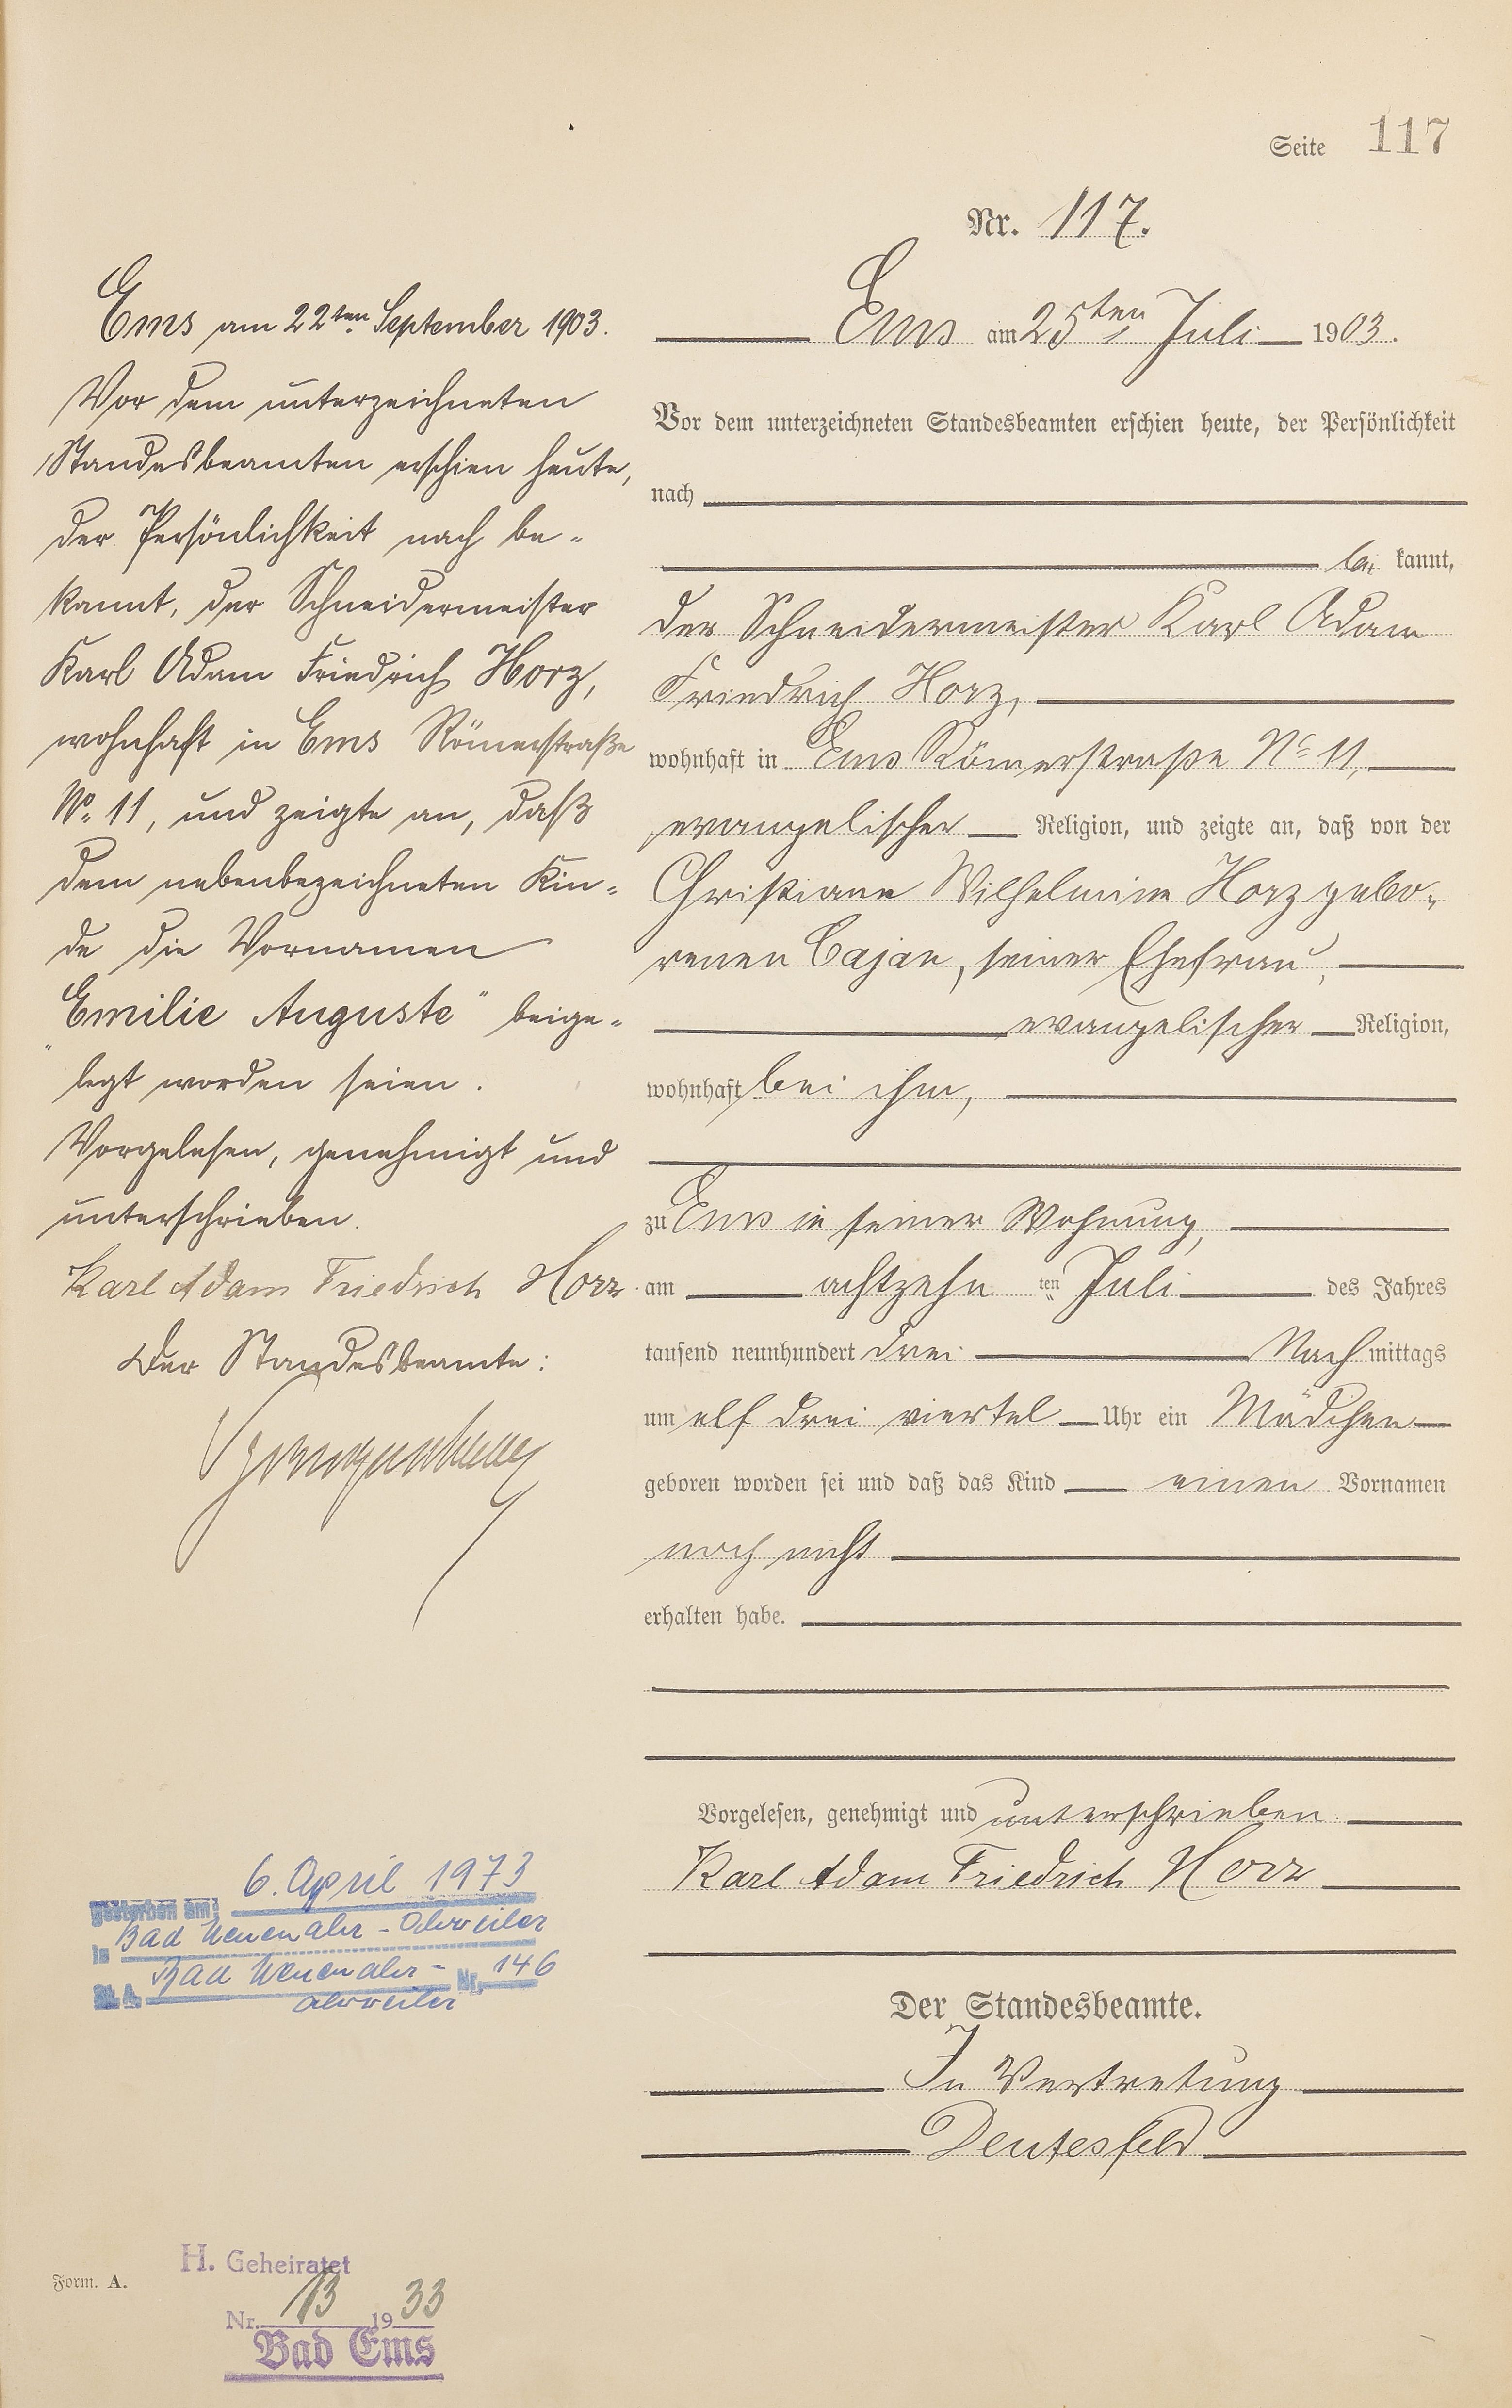 Seite 117
Nr. 117.
Ems am 25ten Juli 1903.
Vor dem unterzeichneten Standesbeamten erschien heute, der Persönlichkeit
nach
be kannt,
der Schneidermeister Karl Adam
Friedrich Horz,
wohnhaft in Ems Römerstraße No 11,
evangelischer Religion, und zeigte an, daß von der
Christiane Wilhelmine Horz gebo-
renen Cajan, seiner Ehefrau,
evangelischer Religion,
wohnhaft bei ihm,
zu Ems in seiner Wohnung,
am achtzehn ten Juli des Jahres
tausend neunhundert drei Nach mittags
um elf drei viertel Uhr ein Mädchen
geboren worden sei und daß das Kind einen Vornamen
noch nicht
erhalten habe.
Vorgelesen, genehmigt und unterschrieben.
Karl Adam Friedrich Horz
Der Standesbeamte.
In Vertretung
Deutesfeld
Ems am 22ten September 1903.
Vor dem unterzeichneten
Standesbeamten erschien heute,
der Persönlichkeit nach be-
kannt, der Schneidermeister
Karl Adam Friedrich Horz,
wohnhaft in Ems Römerstraße
No. 11, und zeigte an, daß
dem nebenbezeichneten Kin-
de die Vornamen
"Emilie Auguste" beige-
legt worden seien.
Vorgelesen, genehmigt und
unterschrieben.
Karl Adam Friedrich Horz.
Der Standesbeamte:
gestorben am: 6. April 1973
in Bad Neuenahr-Ahrweiler
St. A. Bad Neuenahr- Nr. 146
Ahrweiler
H. Geheiratet
Nr. 13 1933
Bad Ems
Form. A.